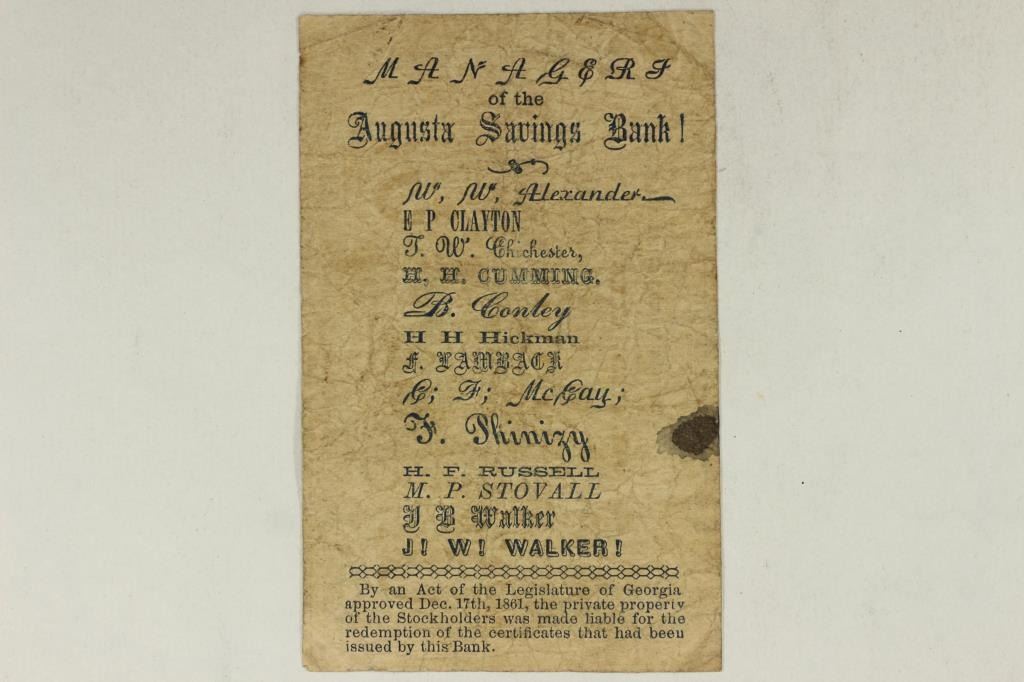 MANAGERS
of the
Augusta Savings Bank!
W, W, Alexander
E P CLAYTON
T. W. Chichester,
H, H. CUMMING.
B. Conley
H H Hickman
F. LAMBACK
C; F; McCay;
F. Phinizy
H. F. RUSSELL
M. P. STOVALL
J B Walker
J! W! WALKER!
By an Act of the Legislature of Georgia
approved Dec. 17th, 1861, the private property
of the Stockholders was made liable for the
redemption of the certificates that had been
issued by this Bank.